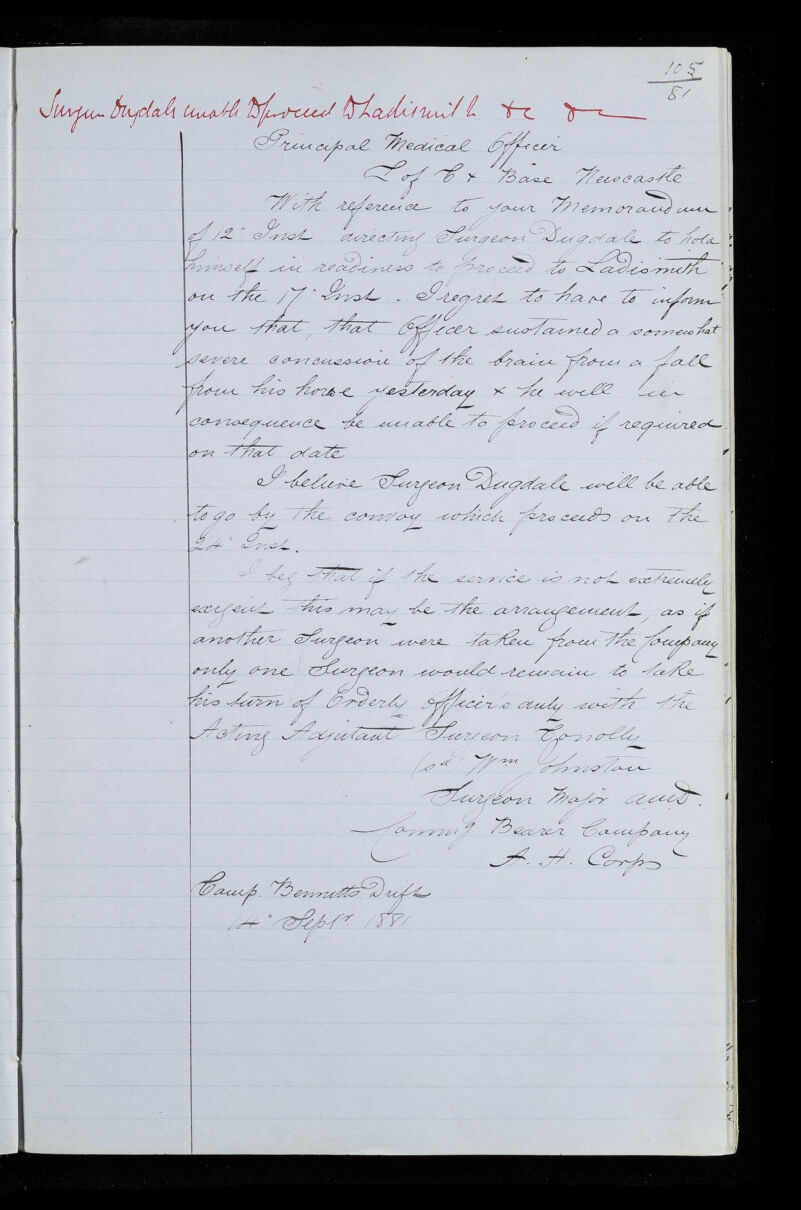 105
81
Surgeon Dugdale unable to proceed to Ladismith &c &c
Principal Medical Officer
L of C & Base Newcastle
With reference to your Memorandum
of 12" Inst, directing Surgeon Dugdale to hold
himself in readiness to proceed to Ladismith
on the 17" Inst. I regret to have to inform
you that, that Officer sustained a somewhat
severe concussion of the brain from a fall
from his horse yesterday & he will in
consequence be unable to proceed if required
on that date
I believe Surgeon Dugdale will be able
to go by the convoy which proceeds on the
24" Inst.
I beg that if the service is not extremely
exigent this may be the arrangement, as if
another Surgeon were taken from the Company
only one Surgeon would remain to take
his turn of Orderly Officer's duty with the
Acting Adjutant Surgeon Conolly
(sd) Wm Johnston
Surgeon Major AMD.
Commg Bearer Company
A. H. Corps
Camp Bennetts Drift
14" Septr 1881